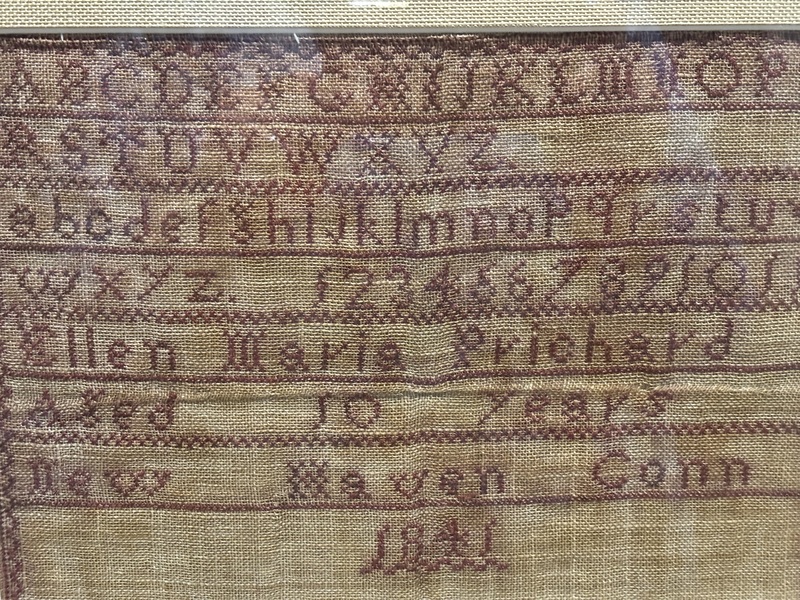 A B C D E F G H I J K L M N O P
R S T U V W X Y Z
a b c d e f g h i j k l m n o p q r s t u v
w x y z. 1 2 3 4 5 6 7 8 9 10 1
Ellen Maria Prichard
Aged 10 years
New Haven Conn
1841